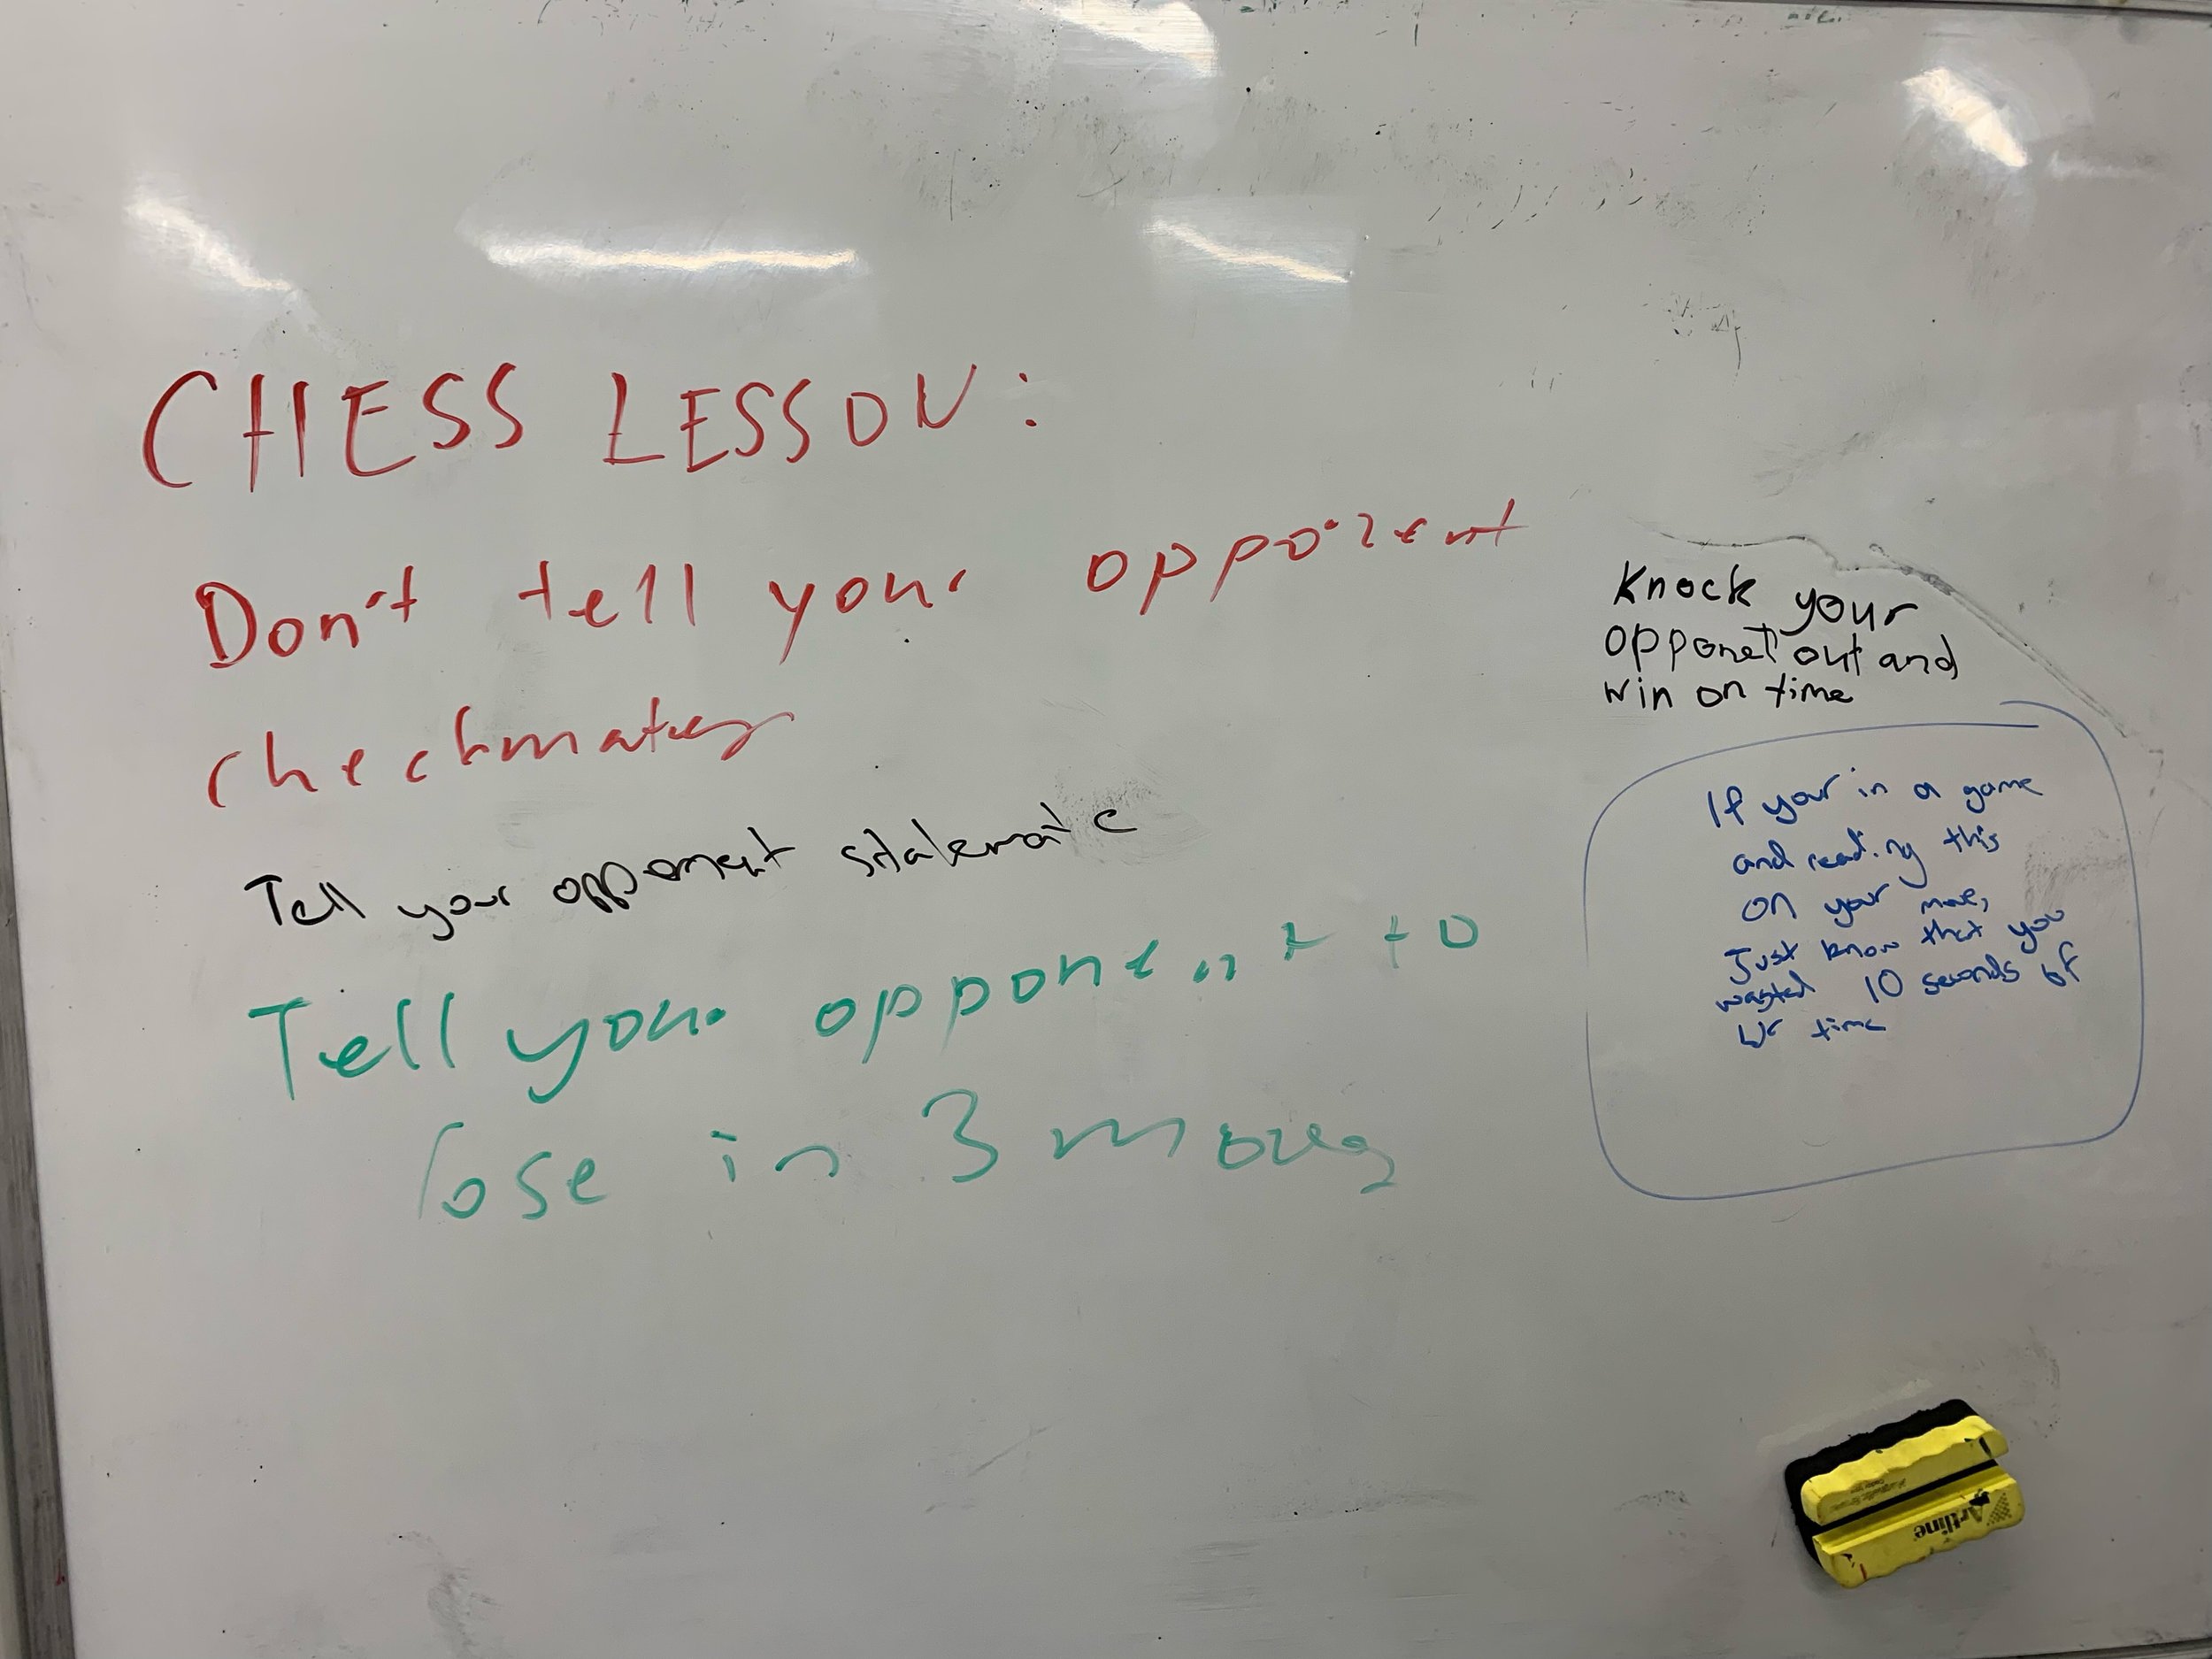 CHESS LESSON:
Don't tell your opponent
checkmates
Tell your opponent stalemate
Tell your opponent to
lose in 3 moves
Knock your
opponet out and
win on time
If your in a game
and reading this
on your move,
Just know that you
wasted 10 seconds of
ur time
Artline